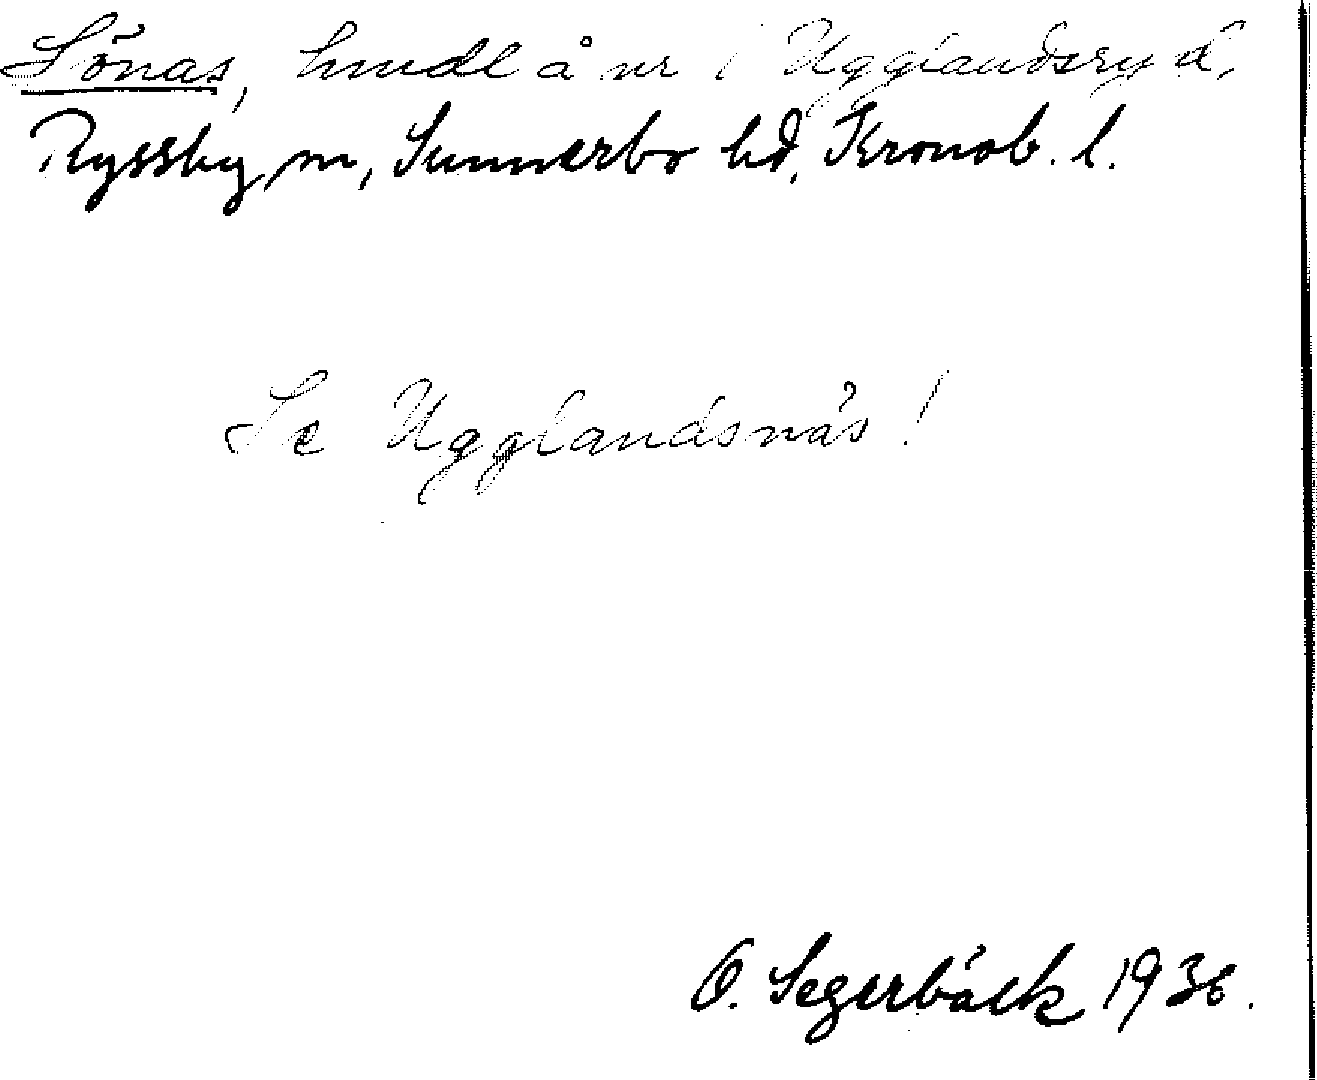 Sönas, hmdl å nr 1 Ugglandsryd,
Ryssby sn, Sunnerbo hd, Kronob. l.
Se Ugglandsnäs!
O. Segerbäck 1936.